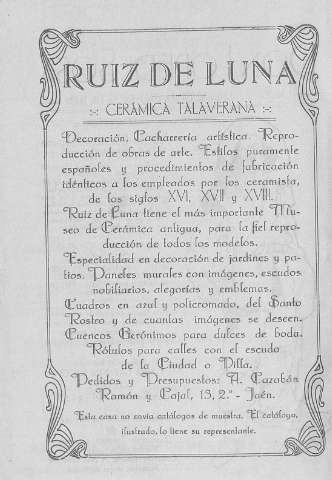 RUIZ DE LUNA
CERÁMICA TALAVERANA
Decoración, Cacharrería artística. Repro-
ducción de obras de arte. Estilos puramente
españoles y procedimientos de fabricación
idénticos a los empleados por los ceramista,
de los siglos XVI, XVII y XVIII.
Ruiz de Luna tiene el más importante Mu-
seo de Cerámica antigua, para la fiel repro-
ducción de todos los modelos.
Especialidad en decoración de jardines y pa-
tios. Paneles murales con imágenes, escudos
nobiliarios, alegorías y emblemas.
Cuadros en azul y policromado, del Santo
Rostro y de cuantas imágenes se deseen.
Cuencos Gerónimos para dulces de boda.
Rótulos para calles con el escudo
de la Ciudad o Villa.
Pedidos y Presupuestos: A. Cazabán
Ramón y Cajal, 15, 2.° - Jaén.
Esta casa no envía catálogos de muestra. El catálogo,
ilustrado, lo tiene su representante.